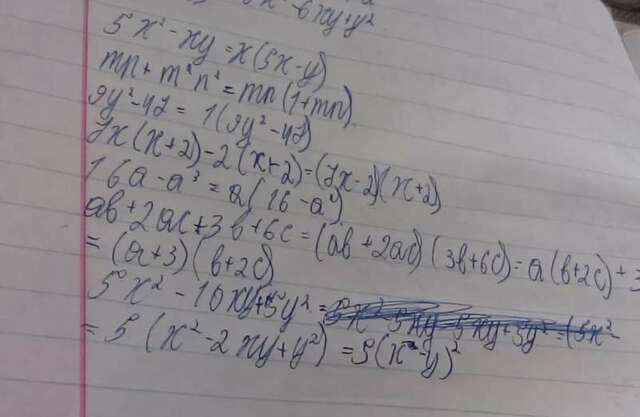 x² - 6xy+y²
5x² - xy = x(5x-y)
mn + m²n² = mn(1+mn)
9y²-4z = 1(9y²-4z)
7x(x+2)-2(x+2)=(7x-2)(x+2)
16a - a³ = a(16-a²)
ab+2ac+3b+6c = (ab+2ac)(3b+6c)=a(b+2c)+3
= (a+3)(b+2c)
5x² - 10xy+5y² =
= 5(x²-2xy+y²) = 5(x-y)²